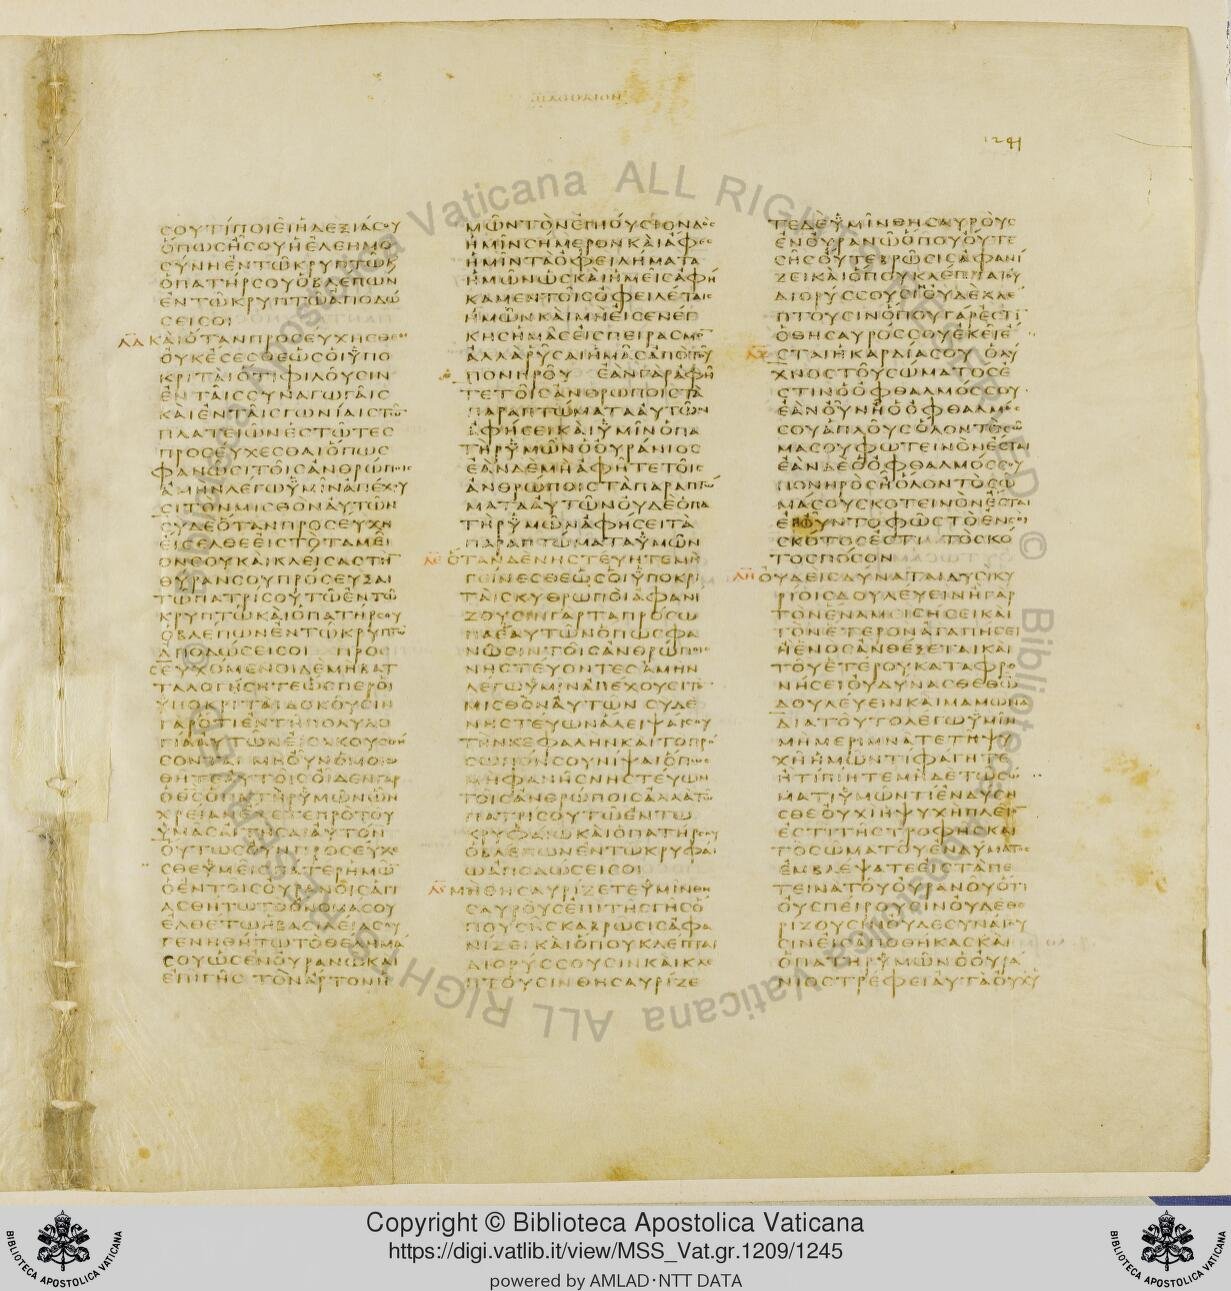 1241
ϹΟΥΤΙΠΟΙΕΙΗΔΕΞΙΑϹΟΥ
ΟΠΩϹΗϹΟΥΗΕΛΕΗΜΟ
ϹΥΝΗΕΝΤΩΚΡΥΠΤΩΚ
ΟΠΑΤΗΡϹΟΥΟΒΛΕΠΩΝ
ΕΝΤΩΚΡΥΠΤΩΑΠΟΔΩ
ϹΕΙϹΟΙ
ΚΑΙΟΤΑΝΠΡΟϹΕΥΧΗϹΘΕ
ΟΥΚΕϹΕϹΘΕΩϹΟΙΥΠΟ
ΚΡΙΤΑΙΟΤΙΦΙΛΟΥϹΙΝ
ΕΝΤΑΙϹϹΥΝΑΓΩΓΑΙϹ
ΚΑΙΕΝΤΑΙϹΓΩΝΙΑΙϹΤΩ
ΠΛΑΤΕΙΩΝΕϹΤΩΤΕϹ
ΠΡΟϹΕΥΧΕϹΘΑΙΟΠΩϹ
ΦΑΝΩϹΙΤΟΙϹΑΝΘΡΩΠΟΙϹ
ΑΜΗΝΛΕΓΩΥΜΙΝΑΠΕΧΟΥ
ϹΙΤΟΝΜΙϹΘΟΝΑΥΤΩΝ
ϹΥΔΕΟΤΑΝΠΡΟϹΕΥΧΗ
ΕΙϹΕΛΘΕΕΙϹΤΟΤΑΜΕΙ
ΟΝϹΟΥΚΑΙΚΛΕΙϹΑϹΤΗ
ΘΥΡΑΝϹΟΥΠΡΟϹΕΥΞΑΙ
ΤΩΠΑΤΡΙϹΟΥΤΩΕΝΤΩ
ΚΡΥΠΤΩΚΑΙΟΠΑΤΗΡϹΟΥ
ΟΒΛΕΠΩΝΕΝΤΩΚΡΥΠΤΩ
ΑΠΟΔΩϹΕΙϹΟΙ ΠΡΟϹ
ΕΥΧΟΜΕΝΟΙΔΕΜΗΒΑΤ
ΤΑΛΟΓΗϹΗΤΕΩϹΠΕΡΟΙ
ΥΠΟΚΡΙΤΑΙΔΟΚΟΥϹΙΝ
ΓΑΡΟΤΙΕΝΤΗΠΟΛΥΛΟ
ΓΙΑΑΥΤΩΝΕΙϹΑΚΟΥϹΘΗ
ϹΟΝΤΑΙ ΜΗΟΥΝΟΜΟΙΩ
ΘΗΤΕΑΥΤΟΙϹΟΙΔΕΝΓΑΡ
ΟΘϹΟΠΑΤΗΡΥΜΩΝΩΝ
ΧΡΕΙΑΝΕΧΕΤΕΠΡΟΤΟΥ
ΥΜΑϹΑΙΤΗϹΑΙΑΥΤΟΝ
ΟΥΤΩϹΟΥΝΠΡΟϹΕΥΧΕ
ϹΘΕΥΜΕΙϹΠΑΤΕΡΗΜΩ
ΟΕΝΤΟΙϹΟΥΡΑΝΟΙϹΑΓΙ
ΑϹΘΗΤΩΤΟΟΝΟΜΑϹΟΥ
ΕΛΘΕΤΩΗΒΑϹΙΛΕΙΑϹΟΥ
ΓΕΝΗΘΗΤΩΤΟΘΕΛΗΜΑ
ϹΟΥΩϹΕΝΟΥΡΑΝΩΚΑΙ
ΕΠΙΓΗϹ ΤΟΝΑΡΤΟΝΗ
ΜΩΝΤΟΝΕΠΙΟΥϹΙΟΝΔΟϹ
ΗΜΙΝϹΗΜΕΡΟΝΚΑΙΑΦΕϹ
ΗΜΙΝΤΑΟΦΕΙΛΗΜΑΤΑ
ΗΜΩΝΩϹΚΑΙΗΜΕΙϹΑΦΗ
ΚΑΜΕΝΤΟΙϹΟΦΕΙΛΕΤΑΙϹ
ΗΜΩΝΚΑΙΜΗΕΙϹΕΝΕΓ
ΚΗϹΗΜΑϹΕΙϹΠΕΙΡΑϹΜΟ
ΑΛΛΑΡΥϹΑΙΗΜΑϹΑΠΟΤΟΥ
ΠΟΝΗΡΟΥ ΕΑΝΓΑΡΑΦΗ
ΤΕΤΟΙϹΑΝΘΡΩΠΟΙϹΤΑ
ΠΑΡΑΠΤΩΜΑΤΑΑΥΤΩΝ
ΑΦΗϹΕΙΚΑΙΥΜΙΝΟΠΑ
ΤΗΡΥΜΩΝΟΟΥΡΑΝΙΟϹ
ΕΑΝΔΕΜΗΑΦΗΤΕΤΟΙϹ
ΑΝΘΡΩΠΟΙϹΤΑΠΑΡΑΠΤΩ
ΜΑΤΑΑΥΤΩΝΟΥΔΕΟΠΑ
ΤΗΡΥΜΩΝΑΦΗϹΕΙΤΑ
ΠΑΡΑΠΤΩΜΑΤΑΥΜΩΝ
ΟΤΑΝΔΕΝΗϹΤΕΥΗΤΕΜΗ
ΓΕΙΝΕϹΘΕΩϹΟΙΥΠΟΚΡΙ
ΤΑΙϹΚΥΘΡΩΠΟΙΑΦΑΝΙ
ΖΟΥϹΙΝΓΑΡΤΑΠΡΟϹΩ
ΠΑΕΑΥΤΩΝΟΠΩϹΦΑ
ΝΩϹΙΝΤΟΙϹΑΝΘΡΩΠΟΙϹ
ΝΗϹΤΕΥΟΝΤΕϹΑΜΗΝ
ΛΕΓΩΥΜΙΝΑΠΕΧΟΥϹΙΤΟ
ΜΙϹΘΟΝΑΥΤΩΝ ϹΥΔΕ
ΝΗϹΤΕΥΩΝΑΛΕΙΨΑΙϹΟΥ
ΤΗΝΚΕΦΑΛΗΝΚΑΙΤΟΠΡΟ
ϹΩΠΟΝϹΟΥΝΙΨΑΙΟΠΩϹ
ΜΗΦΑΝΗϹΝΗϹΤΕΥΩΝ
ΤΟΙϹΑΝΘΡΩΠΟΙϹΑΛΛΑΤΩ
ΠΑΤΡΙϹΟΥΤΩΕΝΤΩ
ΚΡΥΦΑΙΩΚΑΙΟΠΑΤΗΡϹΟΥ
ΟΒΛΕΠΩΝΕΝΤΩΚΡΥΦΑΙ
ΩΑΠΟΔΩϹΕΙϹΟΙ
ΜΗΘΗϹΑΥΡΙΖΕΤΕΥΜΙΝΘΗ
ϹΑΥΡΟΥϹΕΠΙΤΗϹΓΗϹΟ
ΠΟΥϹΗϹΚΑΙΒΡΩϹΙϹΑΦΑ
ΝΙΖΕΙΚΑΙΟΠΟΥΚΛΕΠΤΑΙ
ΔΙΟΡΥϹϹΟΥϹΙΝΚΑΙΚΛΕ
ΠΤΟΥϹΙΝΘΗϹΑΥΡΙΖΕ
ΤΕΔΕΥΜΙΝΘΗϹΑΥΡΟΥϹ
ΕΝΟΥΡΑΝΩΟΠΟΥΟΥΤΕ
ϹΗϹΟΥΤΕΒΡΩϹΙϹΑΦΑΝΙ
ΖΕΙΚΑΙΟΠΟΥΚΛΕΠΤΑΙΟΥ
ΔΙΟΡΥϹϹΟΥϹΙΟΥΔΕΚΛΕ
ΠΤΟΥϹΙΝΟΠΟΥΓΑΡΕϹΤΙ
ΟΘΗϹΑΥΡΟϹϹΟΥΕΚΕΙΕ
ϹΤΑΙΗΚΑΡΔΙΑϹΟΥ ΟΛΥ
ΧΝΟϹΤΟΥϹΩΜΑΤΟϹΕ
ϹΤΙΝΟΟΦΘΑΛΜΟϹϹΟΥ
ΕΑΝΟΥΝΗΟΟΦΘΑΛΜΟϹ
ϹΟΥΑΠΛΟΥϹΟΛΟΝΤΟϹΩ
ΜΑϹΟΥΦΩΤΕΙΝΟΝΕϹΤΑΙ
ΕΑΝΔΕΟΟΦΘΑΛΜΟϹϹΟΥ
ΠΟΝΗΡΟϹΗΟΛΟΝΤΟϹΩ
ΜΑϹΟΥϹΚΟΤΕΙΝΟΝΕϹΤΑΙ
ΕΙΟΥΝΤΟΦΩϹΤΟΕΝϹΟΙ
ϹΚΟΤΟϹΕϹΤΙ ΤΟϹΚΟ
ΤΟϹΠΟϹΟΝ
ΟΥΔΕΙϹΔΥΝΑΤΑΙΔΥϹΙΚΥ
ΡΙΟΙϹΔΟΥΛΕΥΕΙΝΗΓΑΡ
ΤΟΝΕΝΑΜΙϹΗϹΕΙΚΑΙ
ΤΟΝΕΤΕΡΟΝΑΓΑΠΗϹΕΙ
ΗΕΝΟϹΑΝΘΕΞΕΤΑΙΚΑΙ
ΤΟΥΕΤΕΡΟΥΚΑΤΑΦΡΟ
ΝΗϹΕΙΟΥΔΥΝΑϹΘΕΘΩ
ΔΟΥΛΕΥΕΙΝΚΑΙΜΑΜΩΝΑ
ΔΙΑΤΟΥΤΟΛΕΓΩΥΜΙΝ
ΜΗΜΕΡΙΜΝΑΤΕΤΗΨΥ
ΧΗΥΜΩΝΤΙΦΑΓΗΤΕ
ΗΤΙΠΙΗΤΕΜΗΔΕΤΩϹΩ
ΜΑΤΙΥΜΩΝΤΙΕΝΔΥϹΗ
ϹΘΕΟΥΧΙΗΨΥΧΗΠΛΕΙΟ
ΕϹΤΙΤΗϹΤΡΟΦΗϹΚΑΙ
ΤΟϹΩΜΑΤΟΥΕΝΔΥΜΑΤΟϹ
ΕΜΒΛΕΨΑΤΕΕΙϹΤΑΠΕ
ΤΕΙΝΑΤΟΥΟΥΡΑΝΟΥΟΤΙ
ΟΥϹΠΕΙΡΟΥϹΙΝΟΥΔΕΘΕ
ΡΙΖΟΥϹΙΝΟΥΔΕϹΥΝΑΓΟΥ
ϹΙΝΕΙϹΑΠΟΘΗΚΑϹΚΑΙ
ΟΠΑΤΗΡΥΜΩΝΟΟΥΡΑ
ΝΙΟϹΤΡΕΦΕΙΑΥΤΑΟΥΧΥ
Copyright © Biblioteca Apostolica Vaticana
https://digi.vatlib.it/view/MSS_Vat.gr.1209/1245
powered by AMLAD·NTT DATA